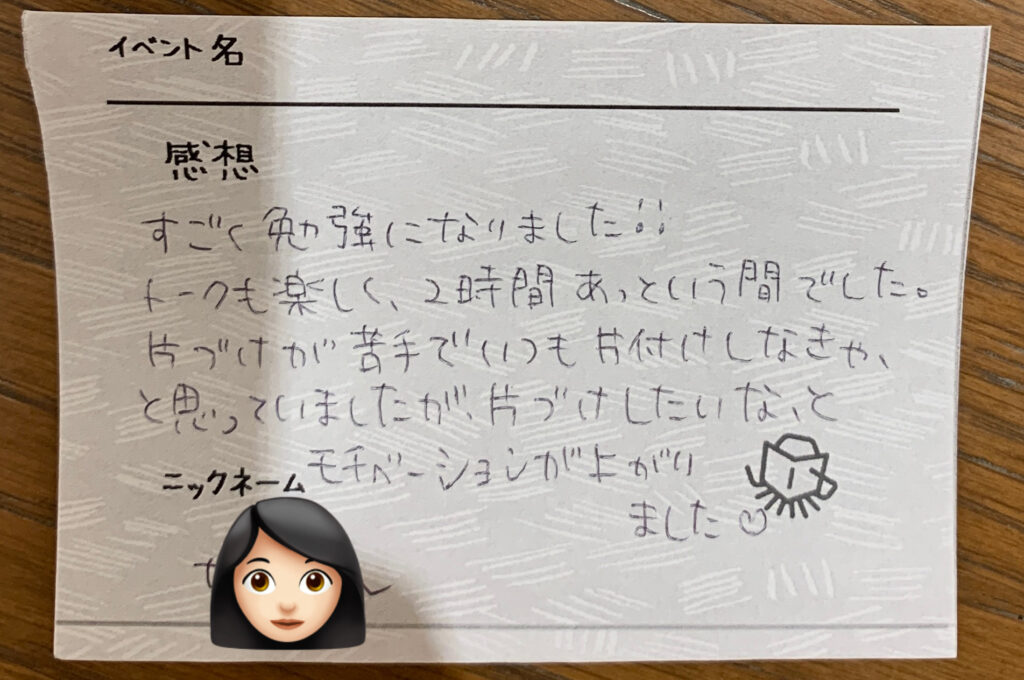 イベント名
感想
すごく勉強になりました!!
トークも楽しく、2時間あっという間でした。
片づけが苦手でいつも片付けしなきゃ、
と思っていましたが、片づけしたいな、と
モチベーションが上がり
ました
ニックネーム